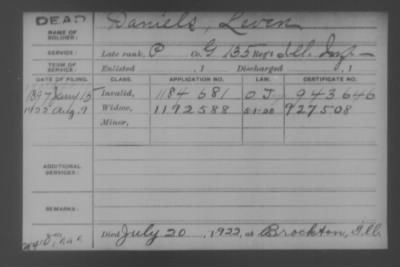 DEAD
NAME OF SOLDIER: Daniels, Leven
SERVICE: Late rank, P Co. G 135 Reg't Ill. Inf
TERM OF SERVICE: Enlisted , 1 Discharged , 1
DATE OF FILING. CLASS. APPLICATION NO. LAW. CERTIFICATE NO.
1897 Jany 15 Invalid, 1184 681 O J 943646
1922 Aug. 9 Widow, 1192588 927508
Minor,
ADDITIONAL SERVICES:
REMARKS:
Died July 20 , 1922, at Brockton, Ill.